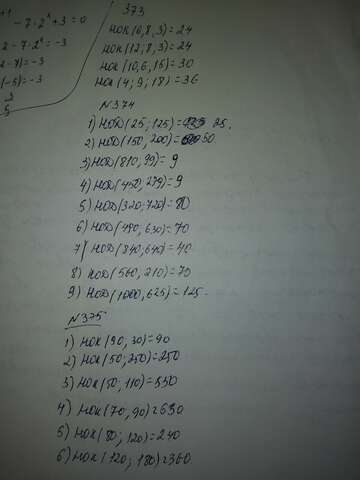 +1
- 7 · 2ˣ + 3 = 0
2 - 7 · 2ˣ = -3
2 - 7) = -3
(-5) = -3
373
НОК (6, 8, 3) = 24
НОК (12; 8, 3) = 24
НОК (10, 6, 15) = 30
НОК (4; 9; 18) = 36
N374
1) НОД (25; 125) = 25.
2) НОД (150, 200) = 50
3) НОД (810, 99) = 9
4) НОД (450; 279) = 9
5) НОД (320; 720) = 80
6) НОД (490, 630) = 70
7) НОД (840, 640) = 40
8) НОД (560, 210) = 70
9) НОД (1000, 625) = 125.
N375
1) НОК (90, 30) = 90
2) НОК (50, 250) = 250
3) НОК (50, 110) = 550
4) НОК (70, 90) = 630
5) НОК (80; 120) = 240
6) НОК (120; 180) = 360